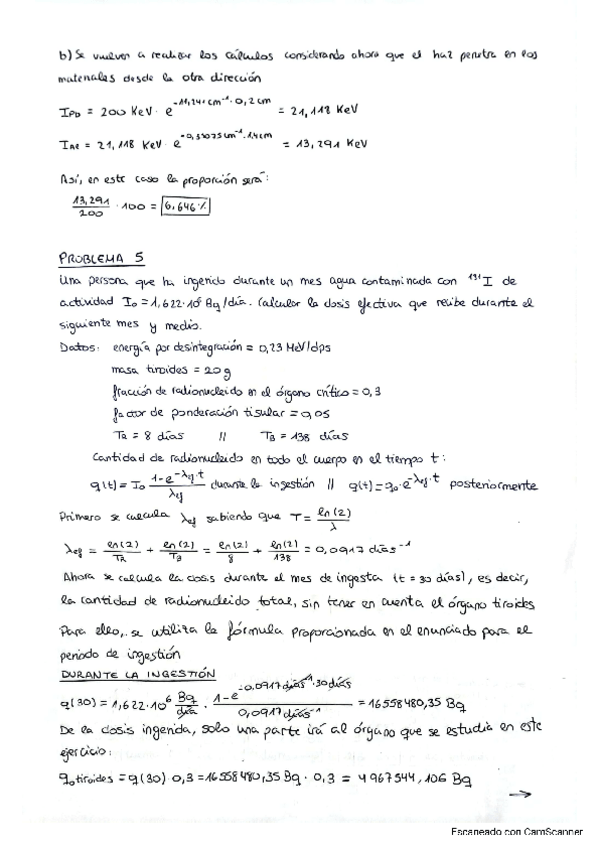 b) Se vuelven a realizar los cálculos considerando ahora que el haz penetra en los
materiales desde la otra dirección
I_PD = 200 KeV · e^(-11,241 cm⁻¹ · 0,2 cm) = 21,118 KeV
= 21,118 KeV · e = 13,291 KeV
Así, en este caso la proporción será:
13,291/200 · 100 = 6,646 %
PROBLEMA 5
Una persona que ha ingerido durante un mes agua contaminada con ¹³¹I de
actividad I₀ = 1,622·10⁶ Bq/día. Calcular la dosis efectiva que recibe durante el
siguiente mes y medio.
Datos: energía por desintegración = 0,23 MeV/dps
masa tiroides = 20 g
fracción de radionucleido en el órgano crítico = 0,3
factor de ponderación tisular = 0,05
T_R = 8 días // T_B = 138 días
Cantidad de radionucleido en todo el cuerpo en el tiempo t:
q(t) = I₀ (1-e^(-λef·t))/λef durante la ingestión // q(t) = q₀·e^(-λef·t) posteriormente
Primero se calcula λef sabiendo que T = ln(2)/λ
λef = ln(2)/T_R + ln(2)/T_B = ln(2)/8 + ln(2)/138 = 0,0917 días⁻¹
Ahora se calcula la dosis durante el mes de ingesta (t = 30 días), es decir,
la cantidad de radionucleido total, sin tener en cuenta el órgano tiroides
Para ello, se utiliza la fórmula proporcionada en el enunciado para el
periodo de ingestión
DURANTE LA INGESTIÓN
q(30) = 1,622·10⁶ Bq/día · (1-e^(-0,0917 días⁻¹·30 días))/(0,0917 días⁻¹) = 16558480,35 Bq
De la dosis ingerida, solo una parte irá al órgano que se estudia en este
ejercicio:
q₀ tiroides = q(30)·0,3 = 16558480,35 Bq · 0,3 = 4967544,106 Bq
→
Escaneado con CamScanner